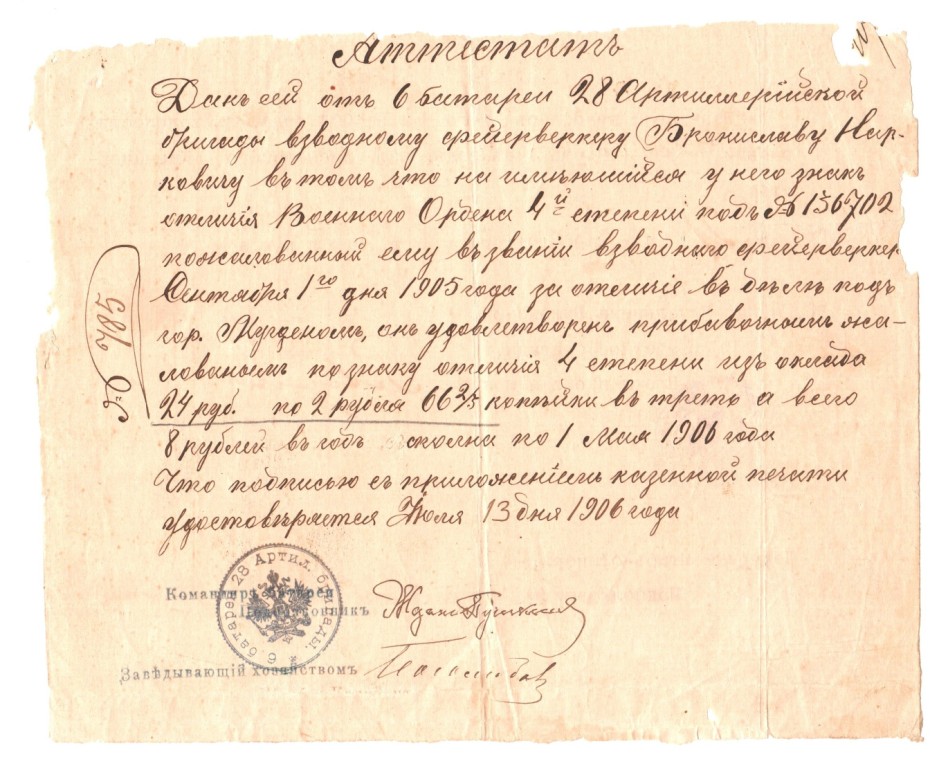 Аттестатъ
Данъ сей отъ 6 батареи 28 Артиллерійской
бригады взводному фейерверкеру Брониславу Нар-
ковичу въ томъ что на имѣющійся у него знакъ
отличія Военнаго Ордена 4й степени подъ № 136702
пожалованный ему въ званіи взводнаго фейерверкер
Сентября 1го дня 1905 года за отличіе въ дѣлѣ подъ
гор. Мукденомъ, онъ удовлетворенъ прибавочнымъ жа-
лованьемъ по знаку отличія 4 степени изъ оклада
24 руб. по 2 рубля 66 2/3 копѣйки въ треть а всего
8 рублей въ годъ сполна по 1 Мая 1906 года
Что подписью съ приложеніемъ казенной печати
удостовѣряется Іюля 13 дня 1906 года
6 батарея 28 Артил. бригады.
Командиръ батареи
Подполковникъ
Завѣдывающій хозяйствомъ